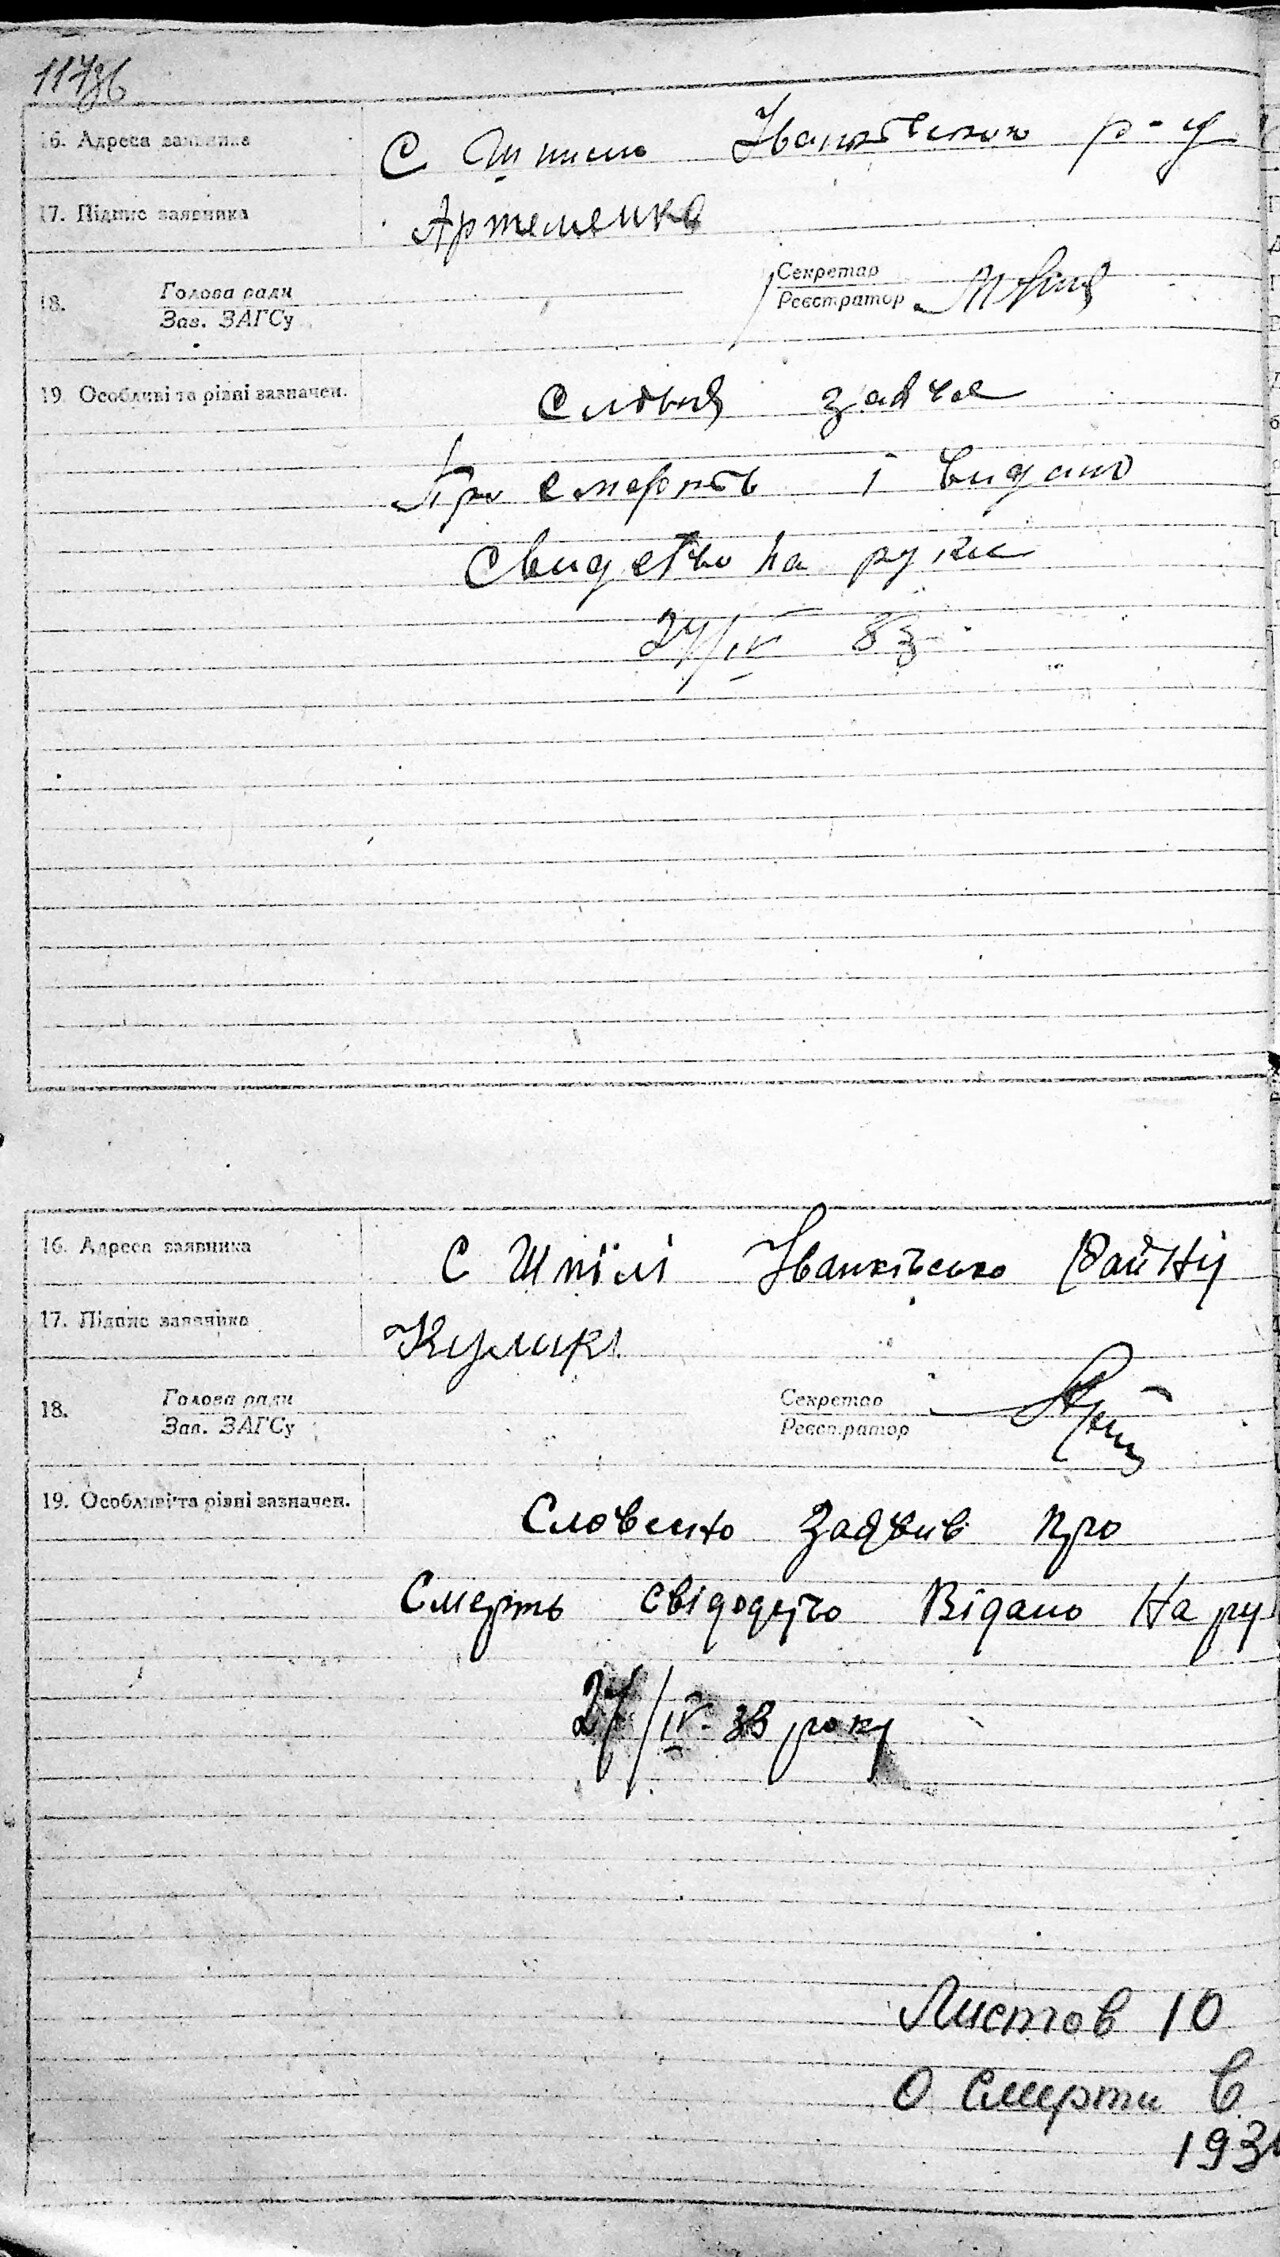 16. Адреса заявника С Шпилі Іванківського р-у
17. Підпис заявника Артеменко
18. Голова ради Зав. ЗАГСу Секретар Реєстратор
19. Особливі та різні зазначен.
Про смерть і видано
на руки
27/IV
16. Адреса заявника С Шпілі Іванківсько Району
17. Підпис заявника Кулик
18. Голова ради Зав. ЗАГСу Секретар Реєстратор
19. Особливі та різні зазначен.
Словесно Заявив про
Смерть Відано На ру
27/IV-33 року
Листов 10
О Смерти в
193